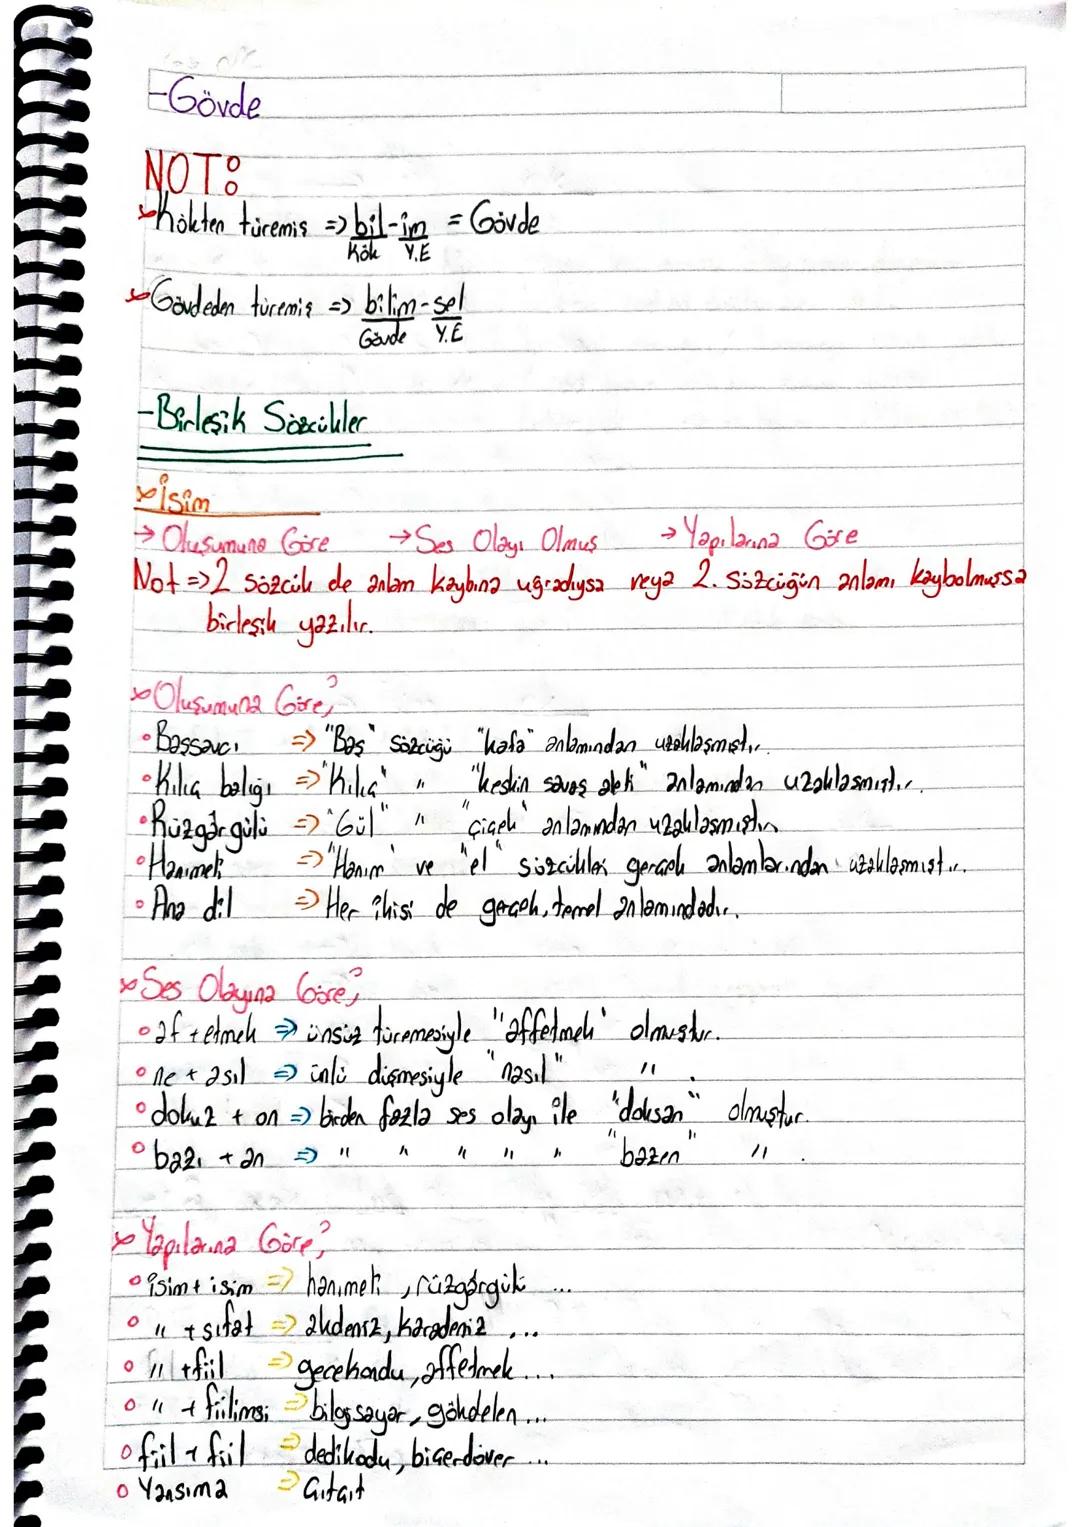 -Gövde
NOT:
Kökten türemiş => bil-im = Gövde
Kök Y.E
Gövdeden türemiş => bilim-sel
Gövde Y.E
-Birleşik Sözcükler
İsim
→ Oluşumuna Göre → Ses Olayı Olmuş → Yapılarına Göre
Not => 2 sözcük de anlam kaybına uğradıysa veya 2. sözcüğün anlamı kaybolmuşsa
birleşik yazılır.
Oluşumuna Göre;
• Başsavcı => "Baş" sözcüğü "kafa" anlamından uzaklaşmıştır.
• Kılıç balığı => "Kılıç" " "keskin savaş aleti" anlamından uzaklaşmıştır.
• Rüzgârgülü => "Gül" " "çiçek" anlamından uzaklaşmıştır
• Hanımeli => "Hanım" ve "el" sözcükleri gerçek anlamlarından uzaklaşmıştır.
• Ana dil => Her ikisi de gerçek, temel anlamındadır.
Ses Olayına Göre;
• af + etmek => ünsüz türemesiyle "affetmek" olmuştur.
• ne + asıl => ünlü düşmesiyle "nasıl" " .
• dokuz + on => birden fazla ses olayı ile "doksan" olmuştur.
• bazı + an => " " " " " "bazen" " .
Yapılarına Göre;
• isim + isim => hanımeli, rüzgârgülü ...
• " + sıfat => akdeniz, karadeniz ...
• " + fiil => gecekondu, affetmek ...
• " + fiilimsi => bilgisayar, gökdelen ...
• fiil + fiil => dedikodu, biçerdöver ...
• Yansıma => Çıtçıt